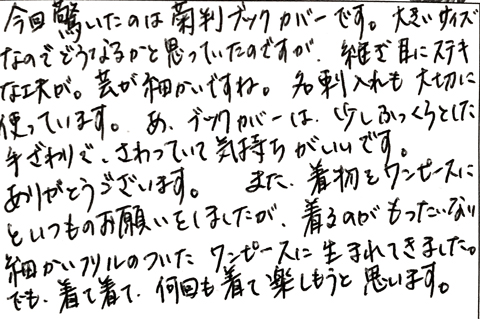 今回驚いたのは菊判ブックカバーです。大きいサイズ
なのでどうなるかと思っていたのですが、継ぎ目にステキ
な工夫が。芸が細かいですね。名刺入れも大切に
使っています。あ、ブックカバーは、少しふっくらとした
手ざわりで、さわっていて気持ちがいいです。
ありがとうございます。 また、着物をワンピースに
といつものお願いをしましたが、着るのがもったいない
細かいフリルのついたワンピースに生まれてきました。
でも、着て着て、何回も着て楽しもうと思います。